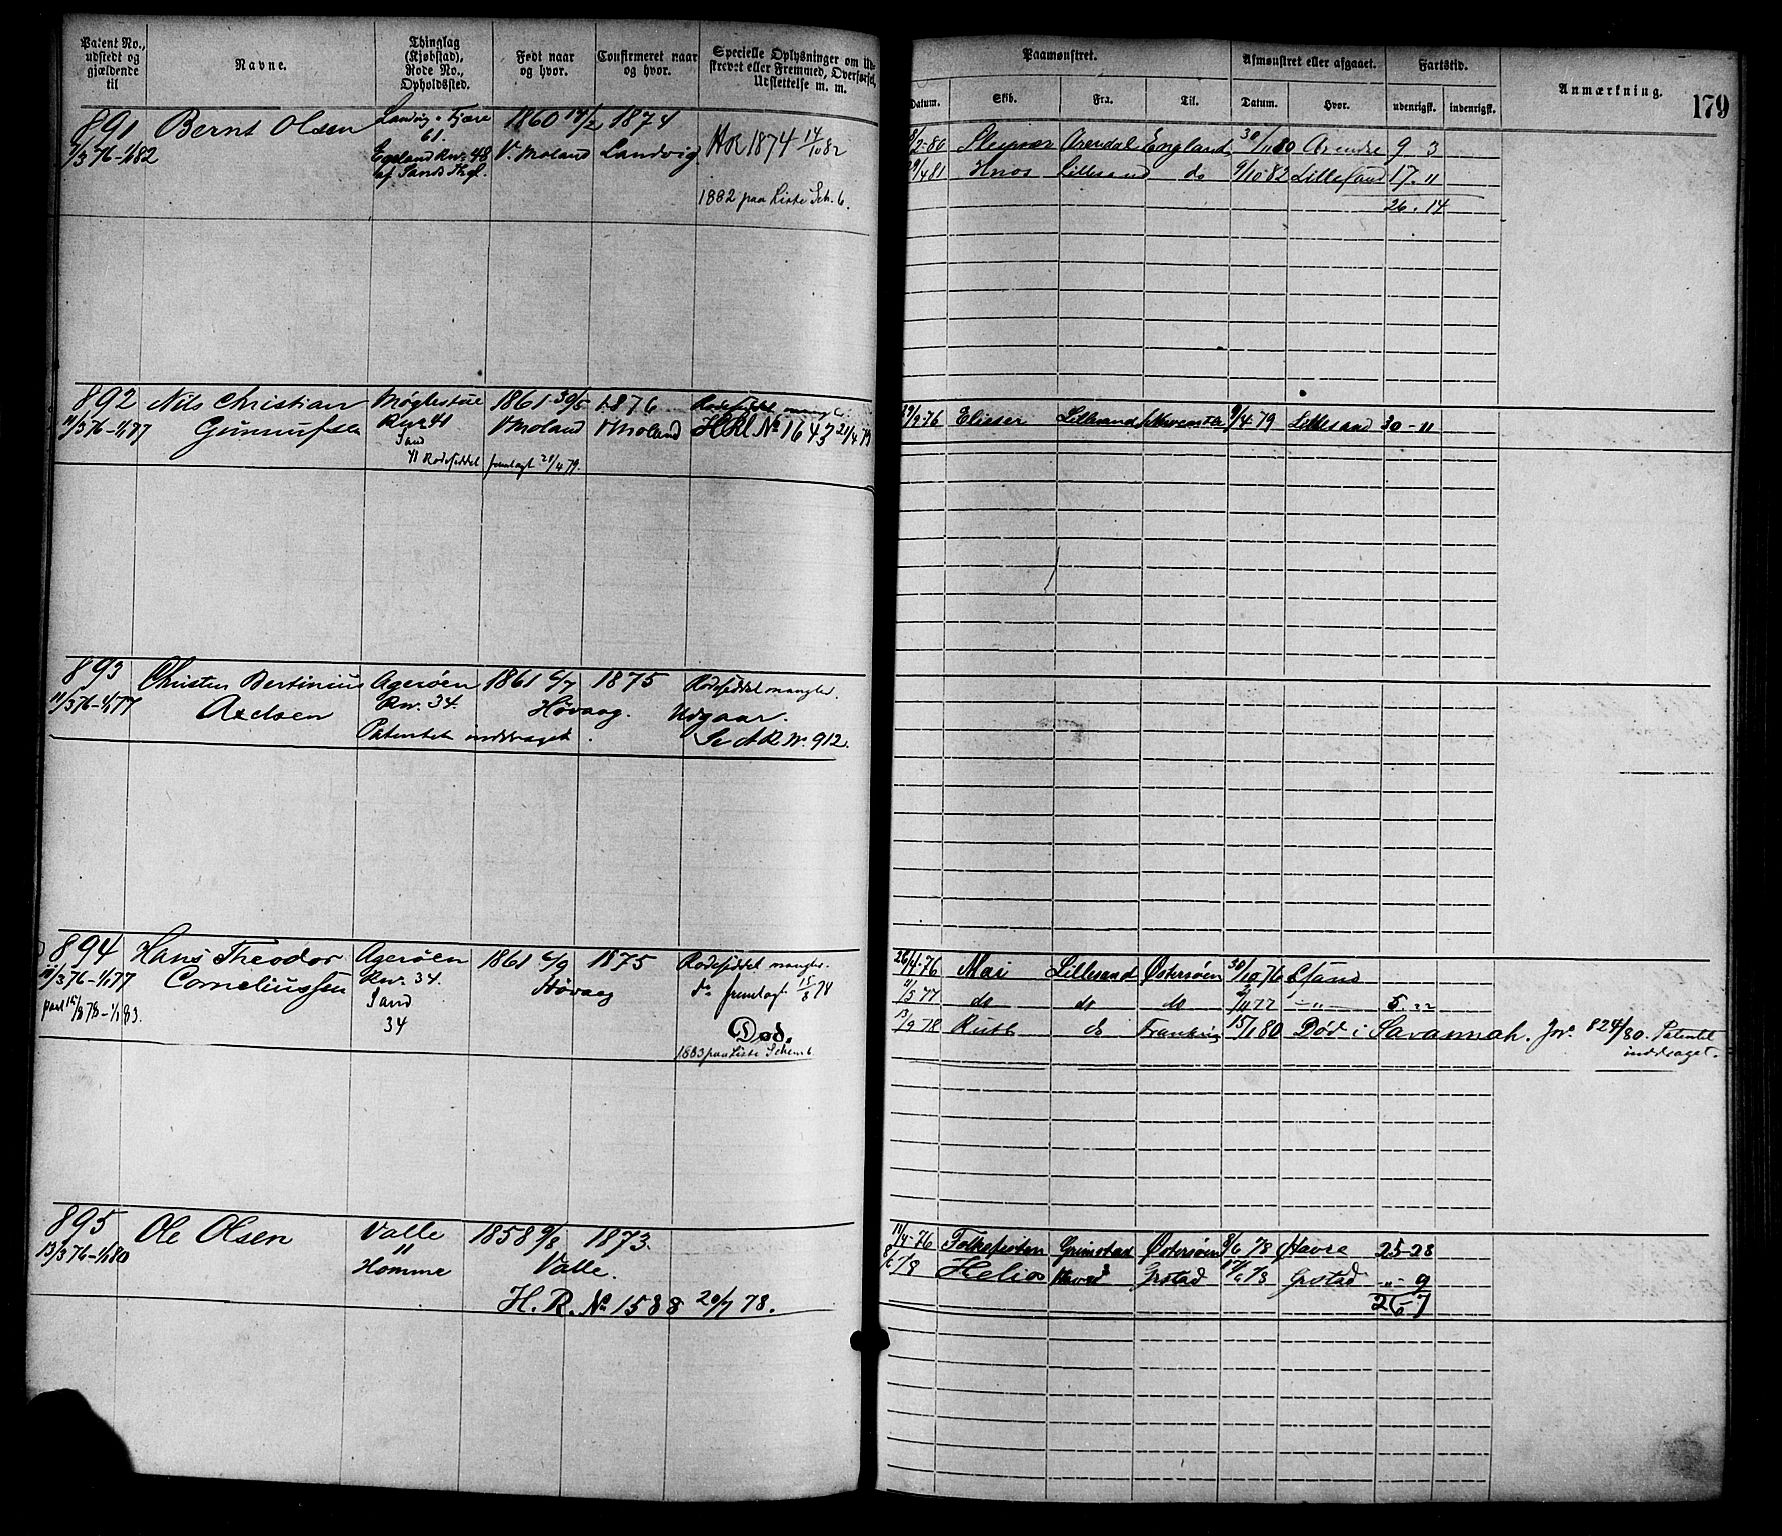 Patent No., udstedt og gjældende til
Navne.
Thinglag (Kjøbstad), Rode No., Opholdssted.
Født naar og hvor.
Confirmeret naar og hvor.
Specielle Oplysninger om
Paamønstret.
Afmønstret eller afgaaet.
Fartstid.
Anmærkning.
179
Datum. Skib. Fra. Til. Datum. Hvor. udenrigsk. indenrigsk.
891 Bernt Olsen Landvig - Fjære 1860 14/2 1874
61.
1/3 76-1/1 82 Egeland Rnr. 48 V. Moland Landvig HR 1874 14/10 82
af Sands Thgl
1882 paa Liste Sch. 6.
Arendal England 30/11 80 9 3
29/4 81 Knos Lillesand do 9/10 82 Lillesand 17. 11
26. 14
892 Nils Christian 1861 30/5 1876 Rodeseddel mangler
11/3 76-1/1 77 Gunnufsen Rnr 41 V Moland V Moland HR No 1643 21/4 79
Sand
41 Rodeseddel fremlagt 21/4 79.
Elieser Lillesand 9/4 79 Lillesand 30-11
893 Christen Bertinius Agerøen 1861 6/7 1875 Rodeseddel mangler.
11/3 76-1/1 77 Axelsen Rnr. 34. Høvaag. Udgaar.
Patentet inddraget. Se AR Nr. 912.
894 Hans Theodor Agerøen 1861 6/9 1875 Rodeseddel mangler.
11/3 76-1/1 77 Corneliussen Rnr. 34. Høvaag do fremlagt 15/8 78
Sand
34
Død.
1883 paa Liste Schem 6
26/4-76 Mai Lillesand Østersøen 30/10 76 Lsand
11/5 77 do do do
13/9 78 Ruth do 15/1 80 Død i Savannah. Jor. 824/80. Patentet
inddraget.
895 Ole Olsen Valle 1858 9/8 1873.
13/3 76-1/1 80 Homme Valle.
H. R. No 1588 20/7 78.
11/4-76 Folkefesten Grimstad Østersøen 8/6 78 Havre 25-28
8/6 78 Helios Grstad Grstad " 9
26-7